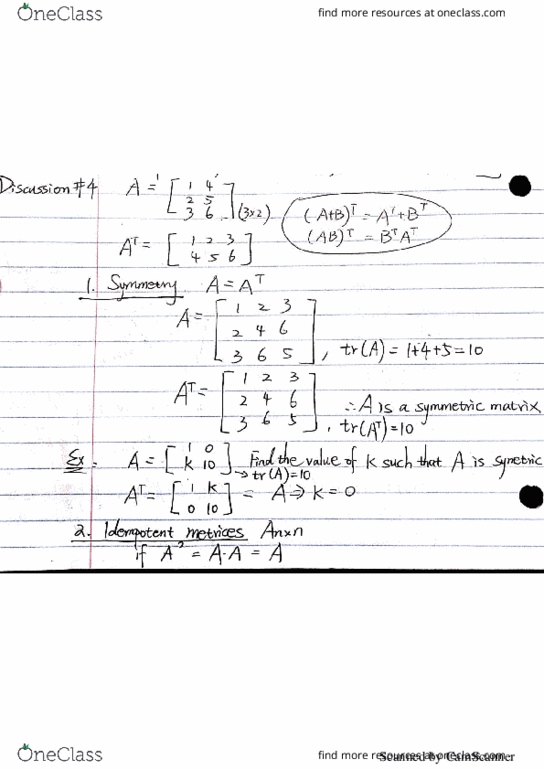 OneClass find more resources at oneclass.com
Discussion #4 A = [ 1 4
2 5
3 6 ] (3x2)
(A+B)ᵀ = A' + Bᵀ
(AB)ᵀ = BᵀAᵀ
Aᵀ = [ 1 2 3
4 5 6 ]
1. Symmetry. A = Aᵀ
A = [ 1 2 3
2 4 6
3 6 5 ], tr(A) = 1+4+5 = 10
Aᵀ = [ 1 2 3
2 4 6
3 6 5 ], tr(Aᵀ) = 10
∴ A is a symmetric matrix
Ex. A = [ 1 0
K 10 ] Find the value of K such that A is symetric
→ tr(A) = 10
Aᵀ = [ 1 K
0 10 ] = A ⇒ K = 0
2. Idempotent metrices Anxn
if A² = A·A = A
OneClass find more resources at oneclass.com
Scanned by CamScanner